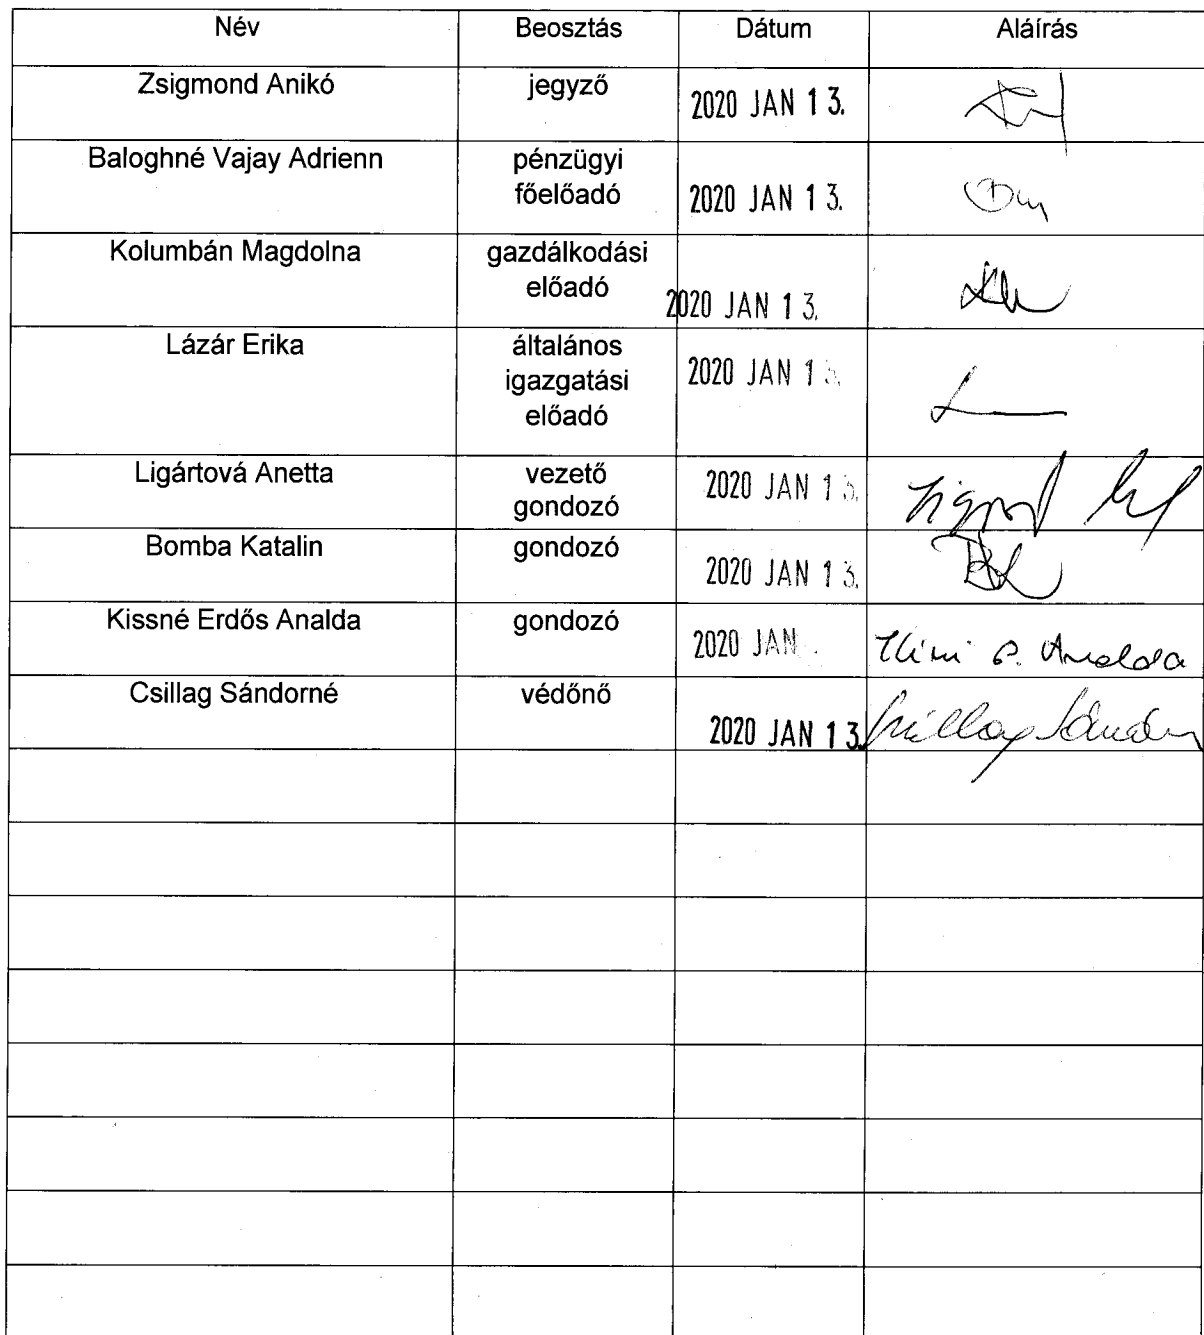 Név Beosztás Dátum Aláírás
Zsigmond Anikó jegyző 2020 JAN 13.
Baloghné Vajay Adrienn pénzügyi
főelőadó 2020 JAN 13.
Kolumbán Magdolna gazdálkodási
előadó 2020 JAN 13.
Lázár Erika általános
igazgatási 2020 JAN 13.
előadó
Ligártová Anetta vezető 2020 JAN 13.
gondozó
Bomba Katalin gondozó 2020 JAN 13.
Kissné Erdős Analda gondozó 2020 JAN Analda
Csillag Sándorné védőnő 2020 JAN 13. Csillag